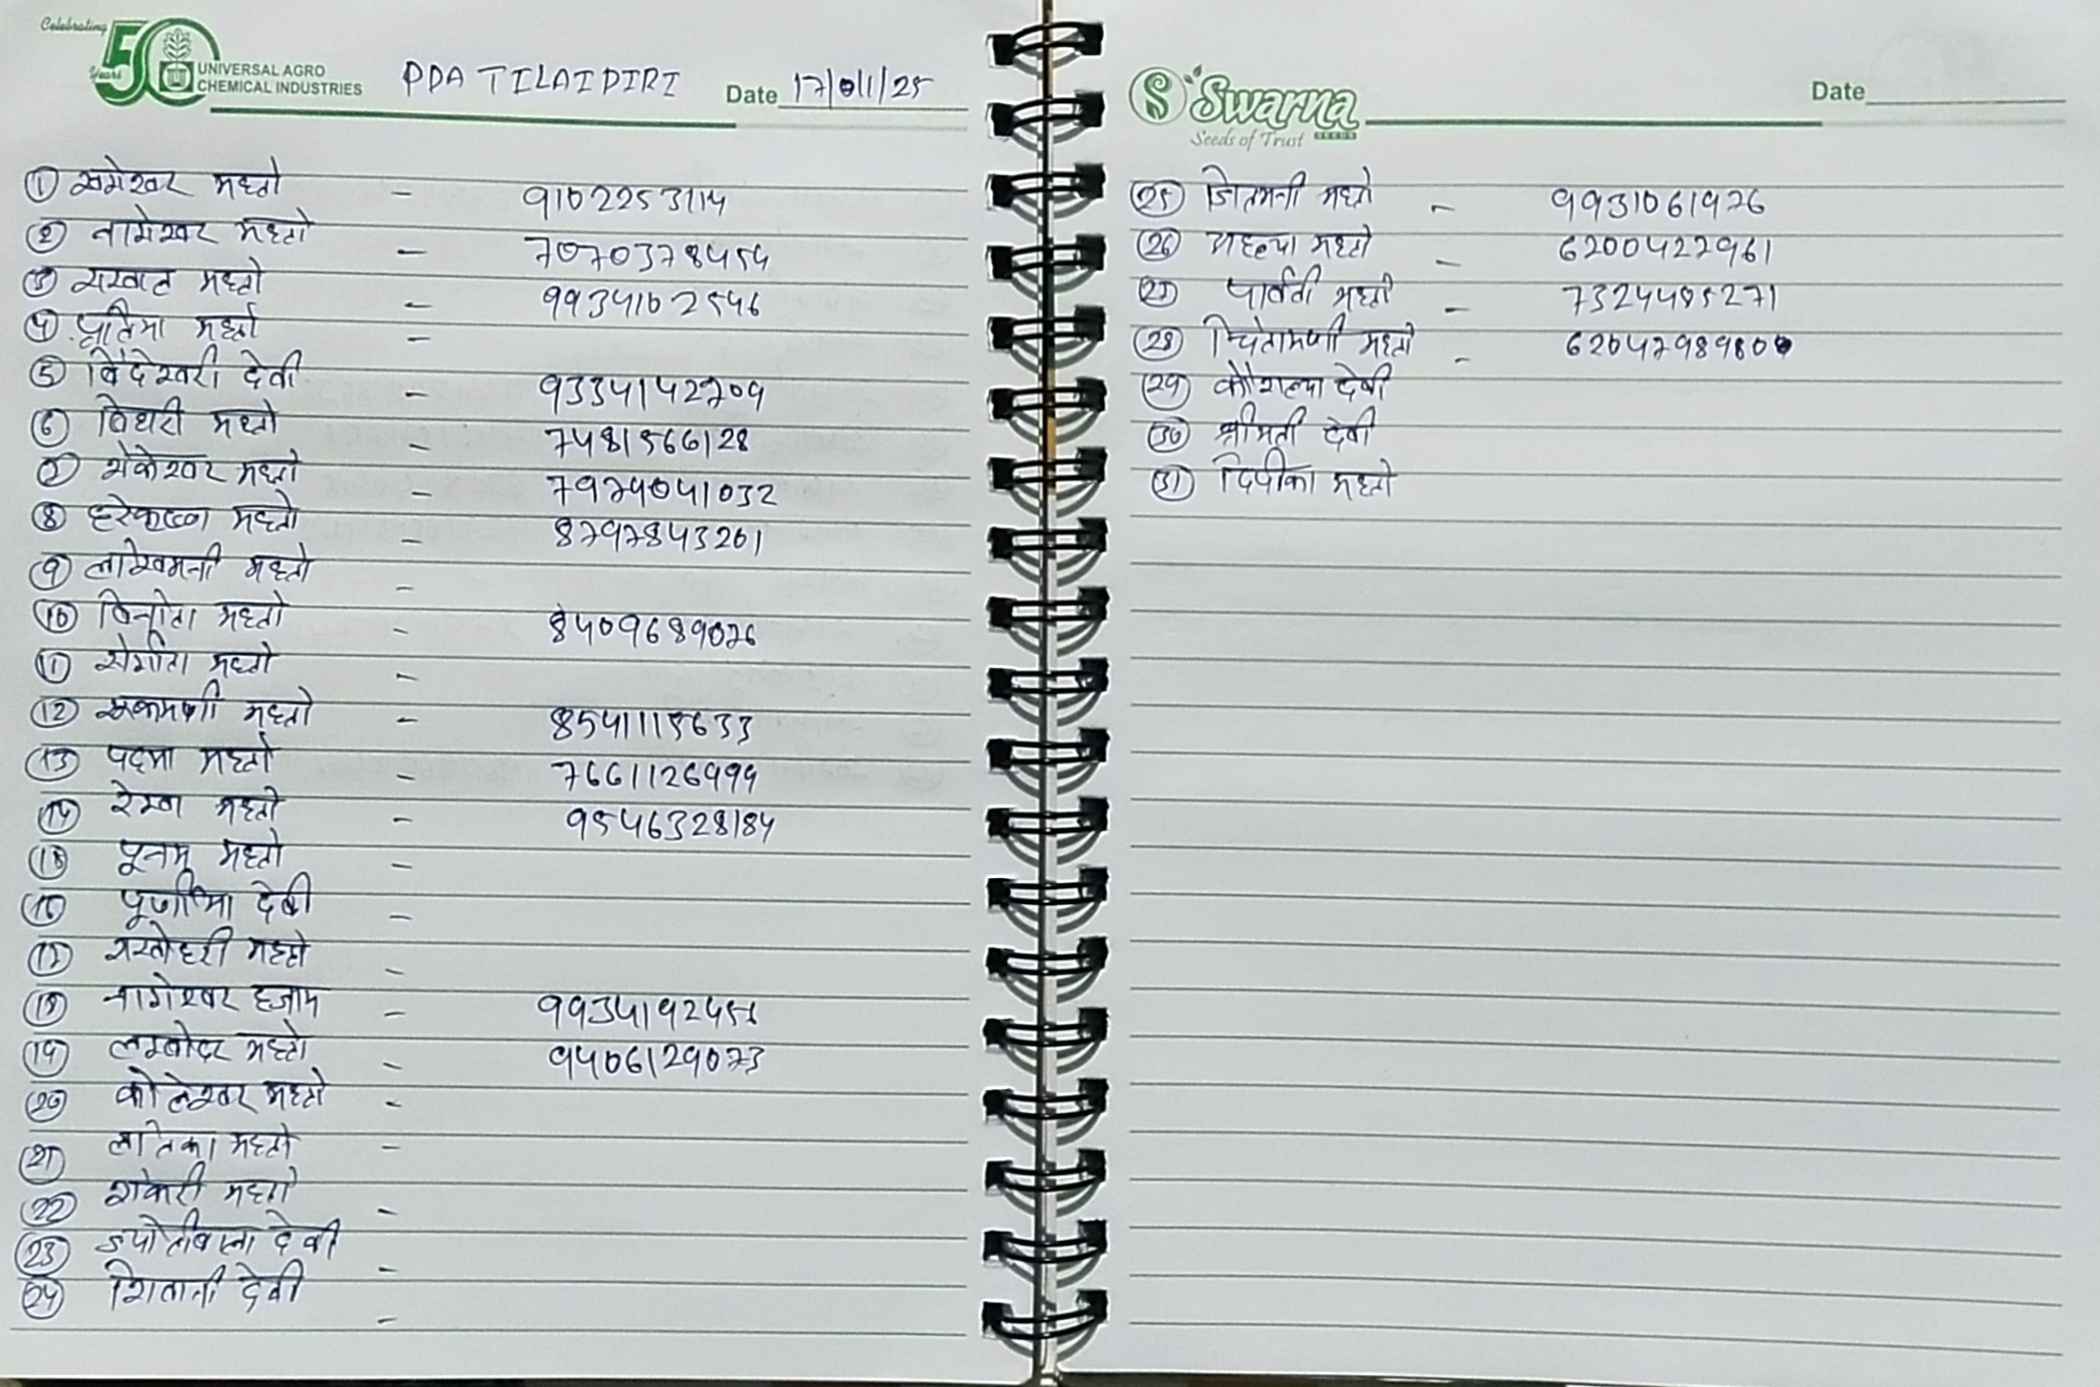 Celebrating
50
Years
UNIVERSAL AGRO
CHEMICAL INDUSTRIES
PDA TILAIDIRI
Date 17/01/25
① खगेश्वर महतो - 9102253114
② नागेश्वर महतो - 7070378454
③ महतो - 9934102546
④ प्रतिमा महतो -
⑤ विंदेश्वरी देवी - 9334142709
⑥ महतो - 7481566128
⑦ महतो - 7974041032
⑧ हरेकृष्ण महतो - 8797843261
⑨ महतो -
⑩ विनीता महतो - 8409689076
⑪ संगीता महतो -
⑫ रूकमणी महतो - 8541115633
⑬ पदमा महतो - 7661126999
⑭ रेखा महतो - 9546328184
⑮ पूनम महतो -
⑯ पूर्णिमा देवी -
⑰ महतो -
⑱ नागेश्वर हजाम -
⑲ लम्बोदर महतो - 9406129073
⑳ कोलेश्वर महतो -
㉑ लतिका महतो -
㉒ महतो -
㉓ देवी -
㉔ देवी -
Swarna
SEEDS
Seeds of Trust
Date
㉕ जितमनी महतो - 9931061976
㉖ महतो - 6200422961
㉗ पार्वती महतो - 7324495271
㉘ चिंतामणी महतो -
㉙ कौशल्या देवी
㉚ श्रीमती देवी
㉛ दिपीका महतो